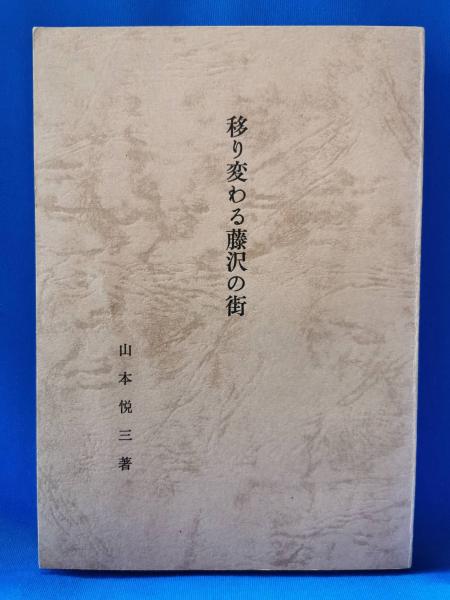 移り変わる藤沢の街
山本悦三著